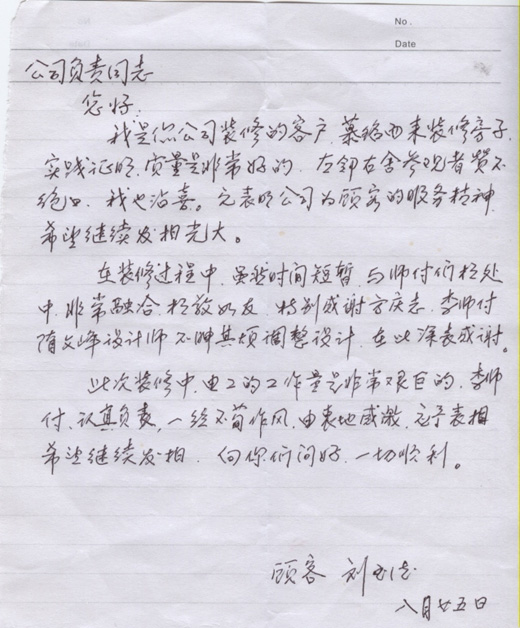 No.
Date
公司负责同志
您好.
我是你公司装修的客户,慕名而来装修房子.
实践证明,质量是非常好的.左邻右舍参观者赞不
绝口.我也沾喜。充表明公司为顾客的服务精神
希望继续发扬光大。
在装修过程中,虽然时间短暂,与师付们相处
中,非常融合,相敬如友.特别感谢方庆志.李师付
隋文峰设计师不呻其烦调整设计.在此深表感谢。
此次装修中,电工的工作量是非常艰巨的.李师
付,认真负责,一丝不苟作风,由表地感激,予表扬
希望继续发扬.向你们问好.一切顺利。
顾客 刘
八月廿五日